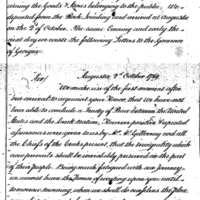 aining the Goods & Stores belonging to the public, We
departed from the Rock landing and arrived at Augusta
on the 2d of October. The same Evening and early the
next day we wrote the following Letters to the Governor
of Georgia
Sir/ Augusta 2d October 1789.
We make use of the first moment after
our arrival to acquaint your Honor, that we have not
been able to conclude a Treaty of Peace between the United
States and the Creek nation. However positive & repeated
assurances were given to us by Mr. McGillivray and all
the Chiefs of the Creeks present, that the tranquility which
now prevails shall be inviolably preserved on the part
of their people. Being much fatigued with our Journey
we cannot have the Honor of waiting upon you until
tomorrow morning, when we shall do ourselves the